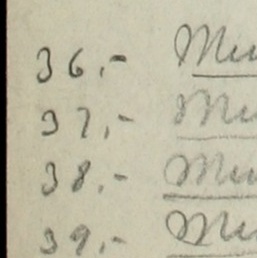 36.- Mu
37.- Mu
38.- Mu
39.- Mu